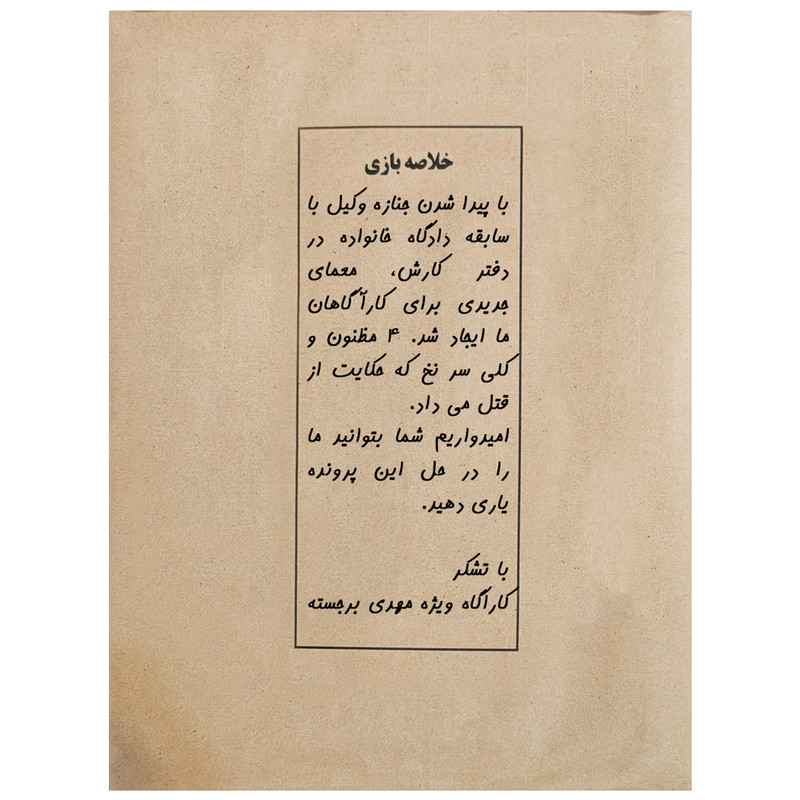 خلاصه بازی
با پیدا شدن جنازه وکیل با
سابقه دادگاه خانواده در
دفتر کارش، معمای
جدیدی برای کارآگاهان
ما ایجاد شد. ۴ مظنون و
کلی سر نخ که حکایت از
قتل می داد.
امیدواریم شما بتوانید ما
را در حل این پرونده
یاری دهید.
با تشکر
کارآگاه ویژه مهدی برجسته